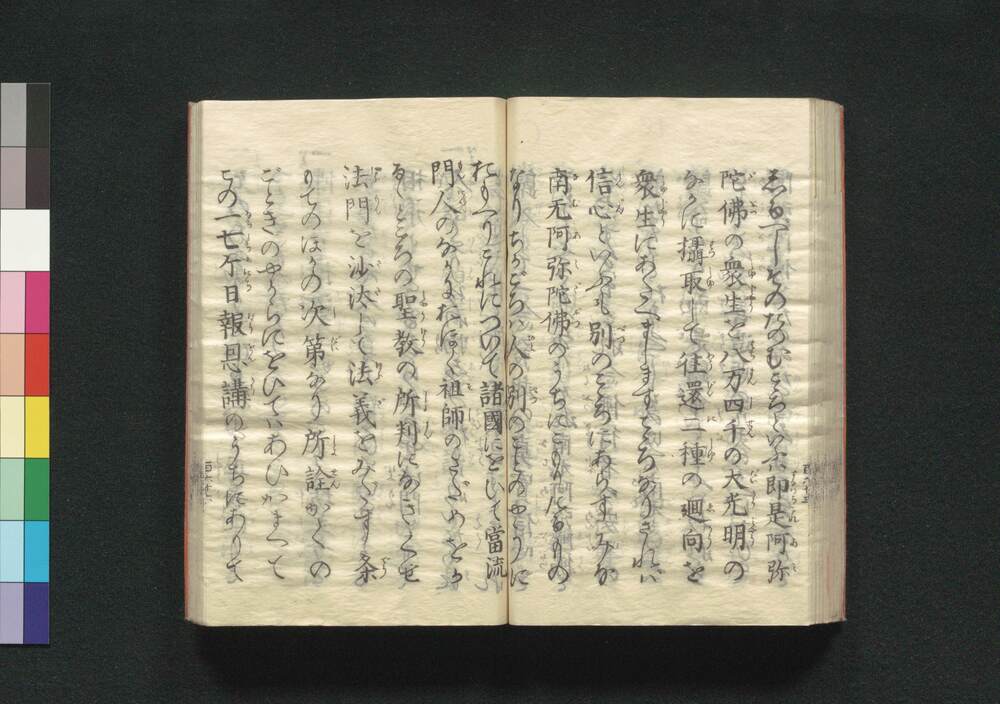 ゑるべしそのたのむこゝろといふは即是阿弥
陀佛の衆生を八万四千の大光明の
なかに攝取して往還二種の廻向を
衆生にあたへましますこゝろなりされは
信心といふも別のこゝろにあらすみな
南无阿弥陀佛のうちにこもりたるもの
なりちかごろは人の別のことのやうに
おもへりこれについて諸國にをひて當流
門人のなかにおほく祖師のさだめをか
るゝところの聖教の所判になきくせ
法門を沙汰して法義をみだす条
もてのほかの次第なり所詮かくの
ごときのやからにをひてはあひかまへて
この一七ケ日報恩講のうちにありて